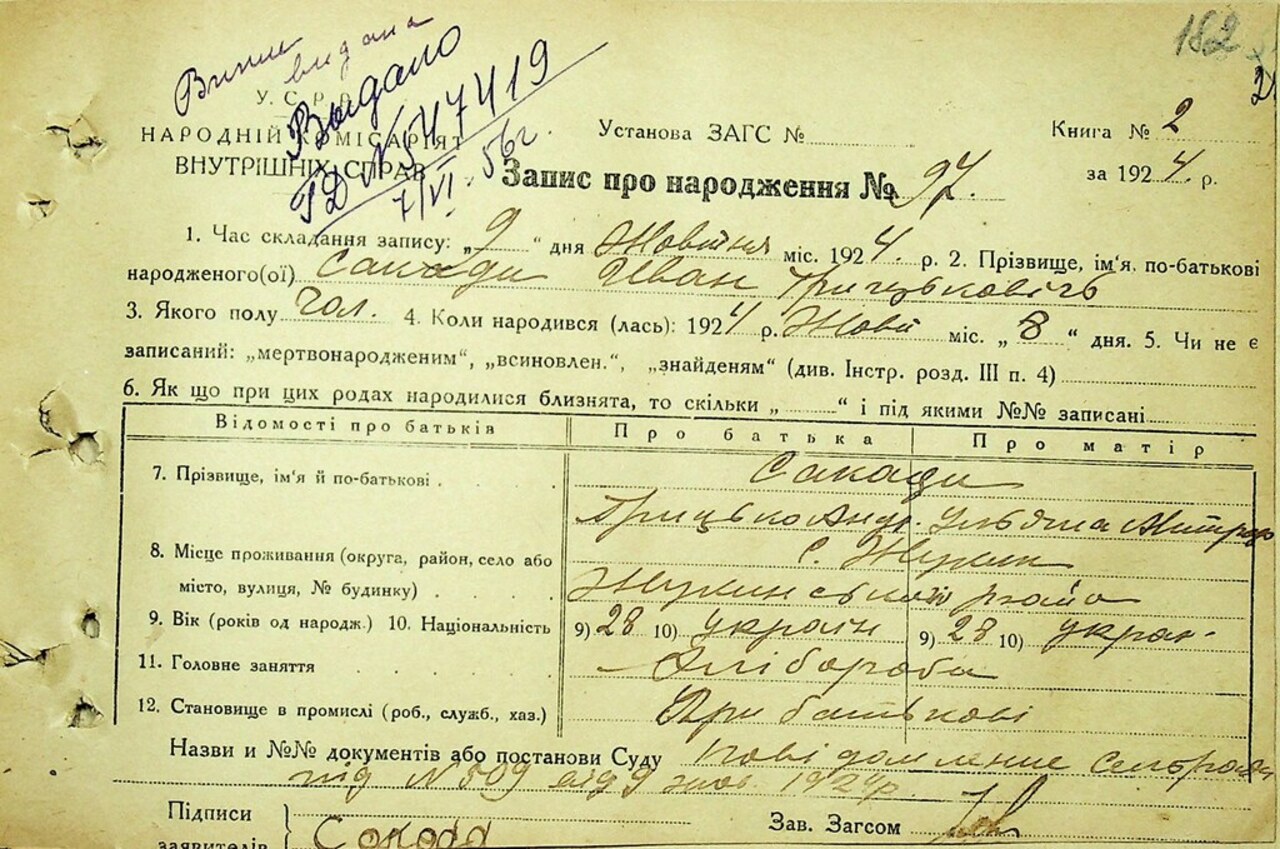 Виписи видана
Выдано
ГД № 547419
7/VI 56 г
182
2
У. С. Р. Р.
НАРОДНІЙ КОМІСАРІЯТ
ВНУТРІШНІХ СПРАВ
Установа ЗАГС №
Книга № 2
за 1924 р.
Запис про народження № 97.
1. Час складання запису: „ 9 “ дня Жовтня міс. 1924. р. 2. Прізвище, ім'я, по-батькові
народженого(ої) Сакади Иван Грицькович
3. Якого полу чол. 4. Коли народився (лась): 1924 р. Жовт міс. „ 8 “ дня. 5. Чи не є
записаний: „мертвонародженим“, „всиновлен.“, „знайденям“ (див. Інстр. розд. III п. 4)
6. Як що при цих родах народилися близнята, то скільки „ “ і під якими №№ записані
Відомості про батьків Про батька Про матір
7. Прізвище, ім'я й по-батькові Сакади
Грицько Андр. Ульяна Митроф
8. Місце проживання (округа, район, село або с. Жукин
місто, вулиця, № будинку) Жукинський району
9. Вік (років од народж.) 10. Національність 9) 28 10) україн 9) 28 10) укран.
11. Головне заняття Хлібороба
12. Становище в промислі (роб., служб., хаз.) При батькові
Назви и №№ документів або постанови Суду Повідомление сельради
під № 509 від 9 жов. 1924 р.
Підписи
заявителів Сокода
Зав. Загсом